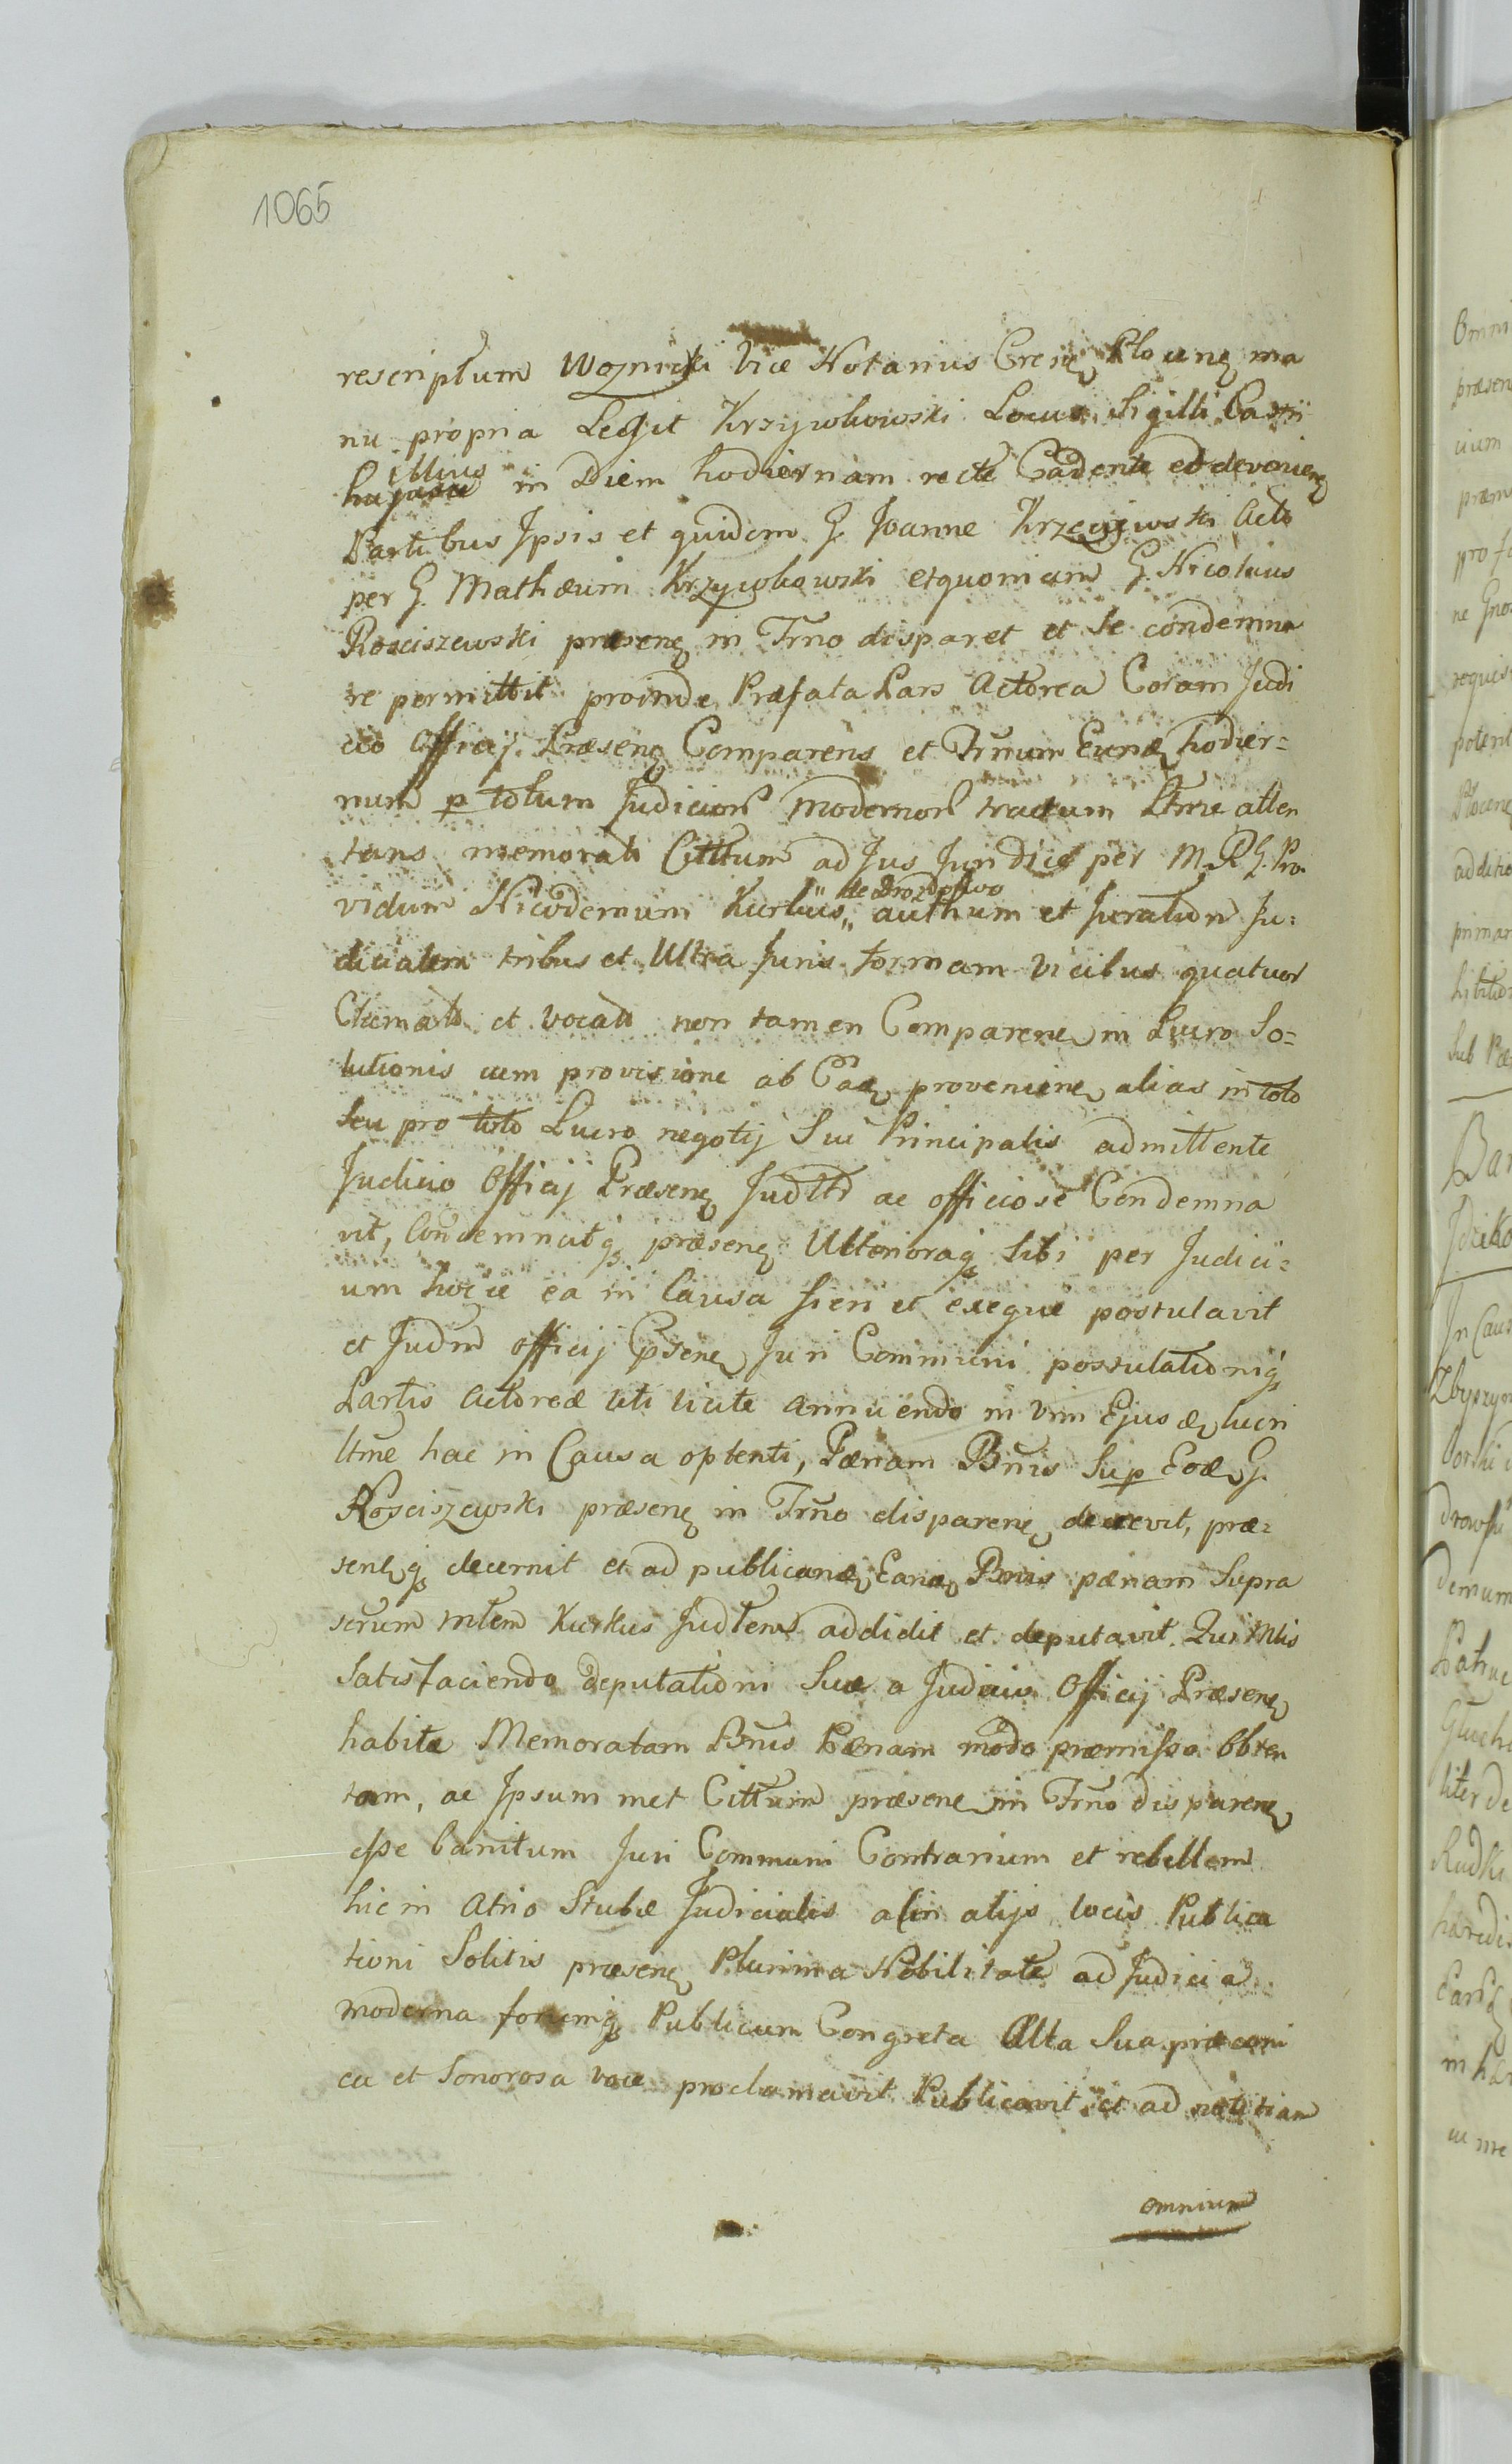 1065
rescriptum Woznicki Vice Notarius Crens Plocens ma
nu propria Legit Krzywkowski Locus Sigilli Castri
illius
in Diem hodiernam recte Cadente et devenien
Partibus Ipsis et quidem G. Joanne Acto
per G. Mathæum Krzywkowski et quoniam G. Nicolaus
Rosciszewski præsen in Trno disparet et Se condemna
re permittit proinde Præfata Pars Actorea Coram Judi
cio Officij Præsen Comparens et Trnum Eund hodier=
num p totum Judicior modernor tractum Ltme atten
tans memorati Cittum ad Jus Juridice per M. R. G. Pro
de Drozdowo
vidum Nicodemum Kurkus authum et Juratum Ju=
dicialem tribus et Ultra Juris formam vicibus quatuor
Clamati et vocati non tamen Comparen in Lucro So=
lutionis cum provisione ab Ead provenien alias in toto
seu pro toto Lucro negotij Sui Principalis admittente
Judicio Officij Præsen Judltr ac officiose Condemna
vit, Condemnatq præsen Ulterioraq Sibi per Judici=
um hocce ea in Causa fieri et exequi postulavit
et Judm officij Præsen Juri Communi postulationiq
Partis Actoreæ uti licite annuendo in vim Ejusd lucri
ltme hac in Causa optenti, Pænam Bnis Sup Eod G.
Rosciszewski præsen in Trno disparen decrevit, præ=
senq decernit et ad publicand Eand Bnis pænam Supra
scrum Mtem Kurkus Judlem addidit et deputavit. Qui Mtis
Satisfaciendo deputationi Suæ a Judicio Officij Præsen
habitæ Memoratam Bnis Pænam modo præmisso obten
tam, ac Ipsum met Cittum præsen in Trno disparen
esse banitum Juri Communi Contrarium et rebellem
hic in atrio Stubæ Judicialis alijs locis Publica
tioni Solitis præsen Plurima Nobilitate ad Judicia
moderna forumq Publicum Congreta Alta Sua præconi
ca et Sonorosa voce proclamavit Publicavit et ad notitiam
omnium